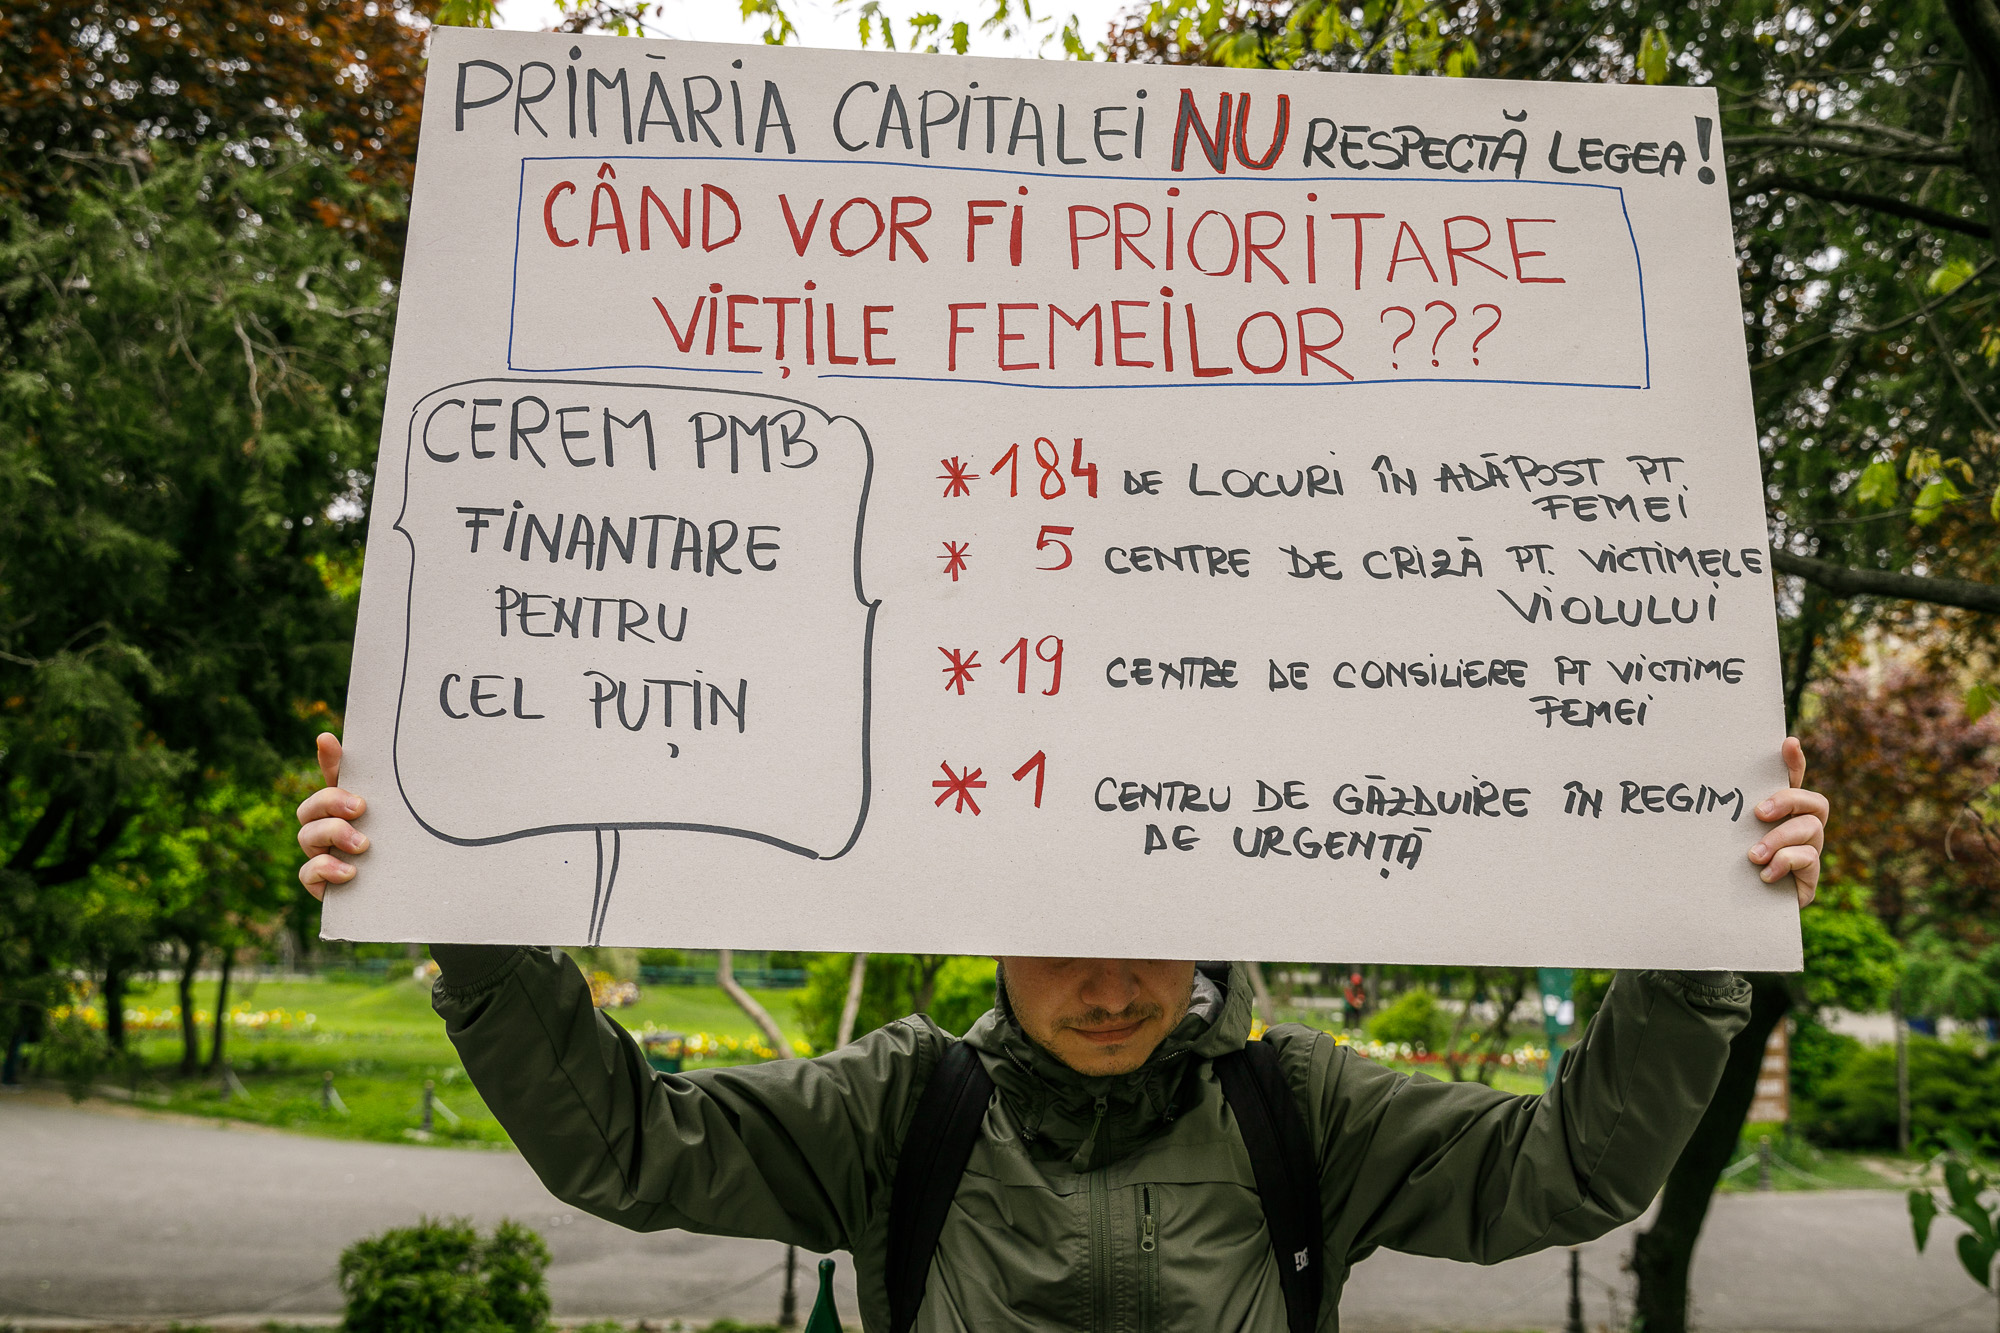 PRIMĂRIA CAPITALEI NU RESPECTĂ LEGEA!
CÂND VOR FI PRIORITARE
VIEȚILE FEMEILOR ???
CEREM PMB
FINANTARE
PENTRU
CEL PUȚIN
* 184 DE LOCURI ÎN ADĂPOST PT.
FEMEI
* 5 CENTRE DE CRIZĂ PT. VICTIMELE
VIOLULUI
* 19 CENTRE DE CONSILIERE PT VICTIME
FEMEI
* 1 CENTRU DE GĂZDUIRE ÎN REGIM
DE URGENȚĂ